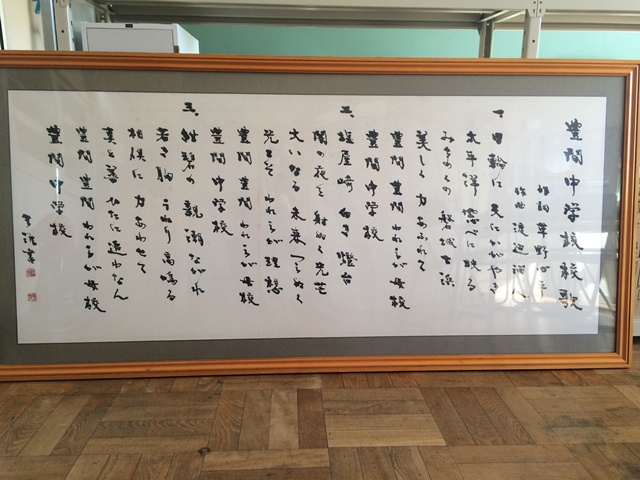 豊間中学校校歌
作詞 草野心平
作曲 渡辺浦人
一、日輪は 天にかがやき
太平洋 雲べに映る
みちのくの 磐城七浜
美しく 力あふれて
豊間 豊間 われらが母校
豊間中学校
二、塩屋崎 白き燈台
闇の夜を 射ぬく光芒
大いなる 未来つらぬく
光こそ われらが理想
豊間 豊間 われらが母校
豊間中学校
三、紺碧の 親潮ながれ
若き胸 うねり高鳴る
相倶に 力あわせて
真と善 ひたに追わなん
豊間 豊間 われらが母校
豊間中学校